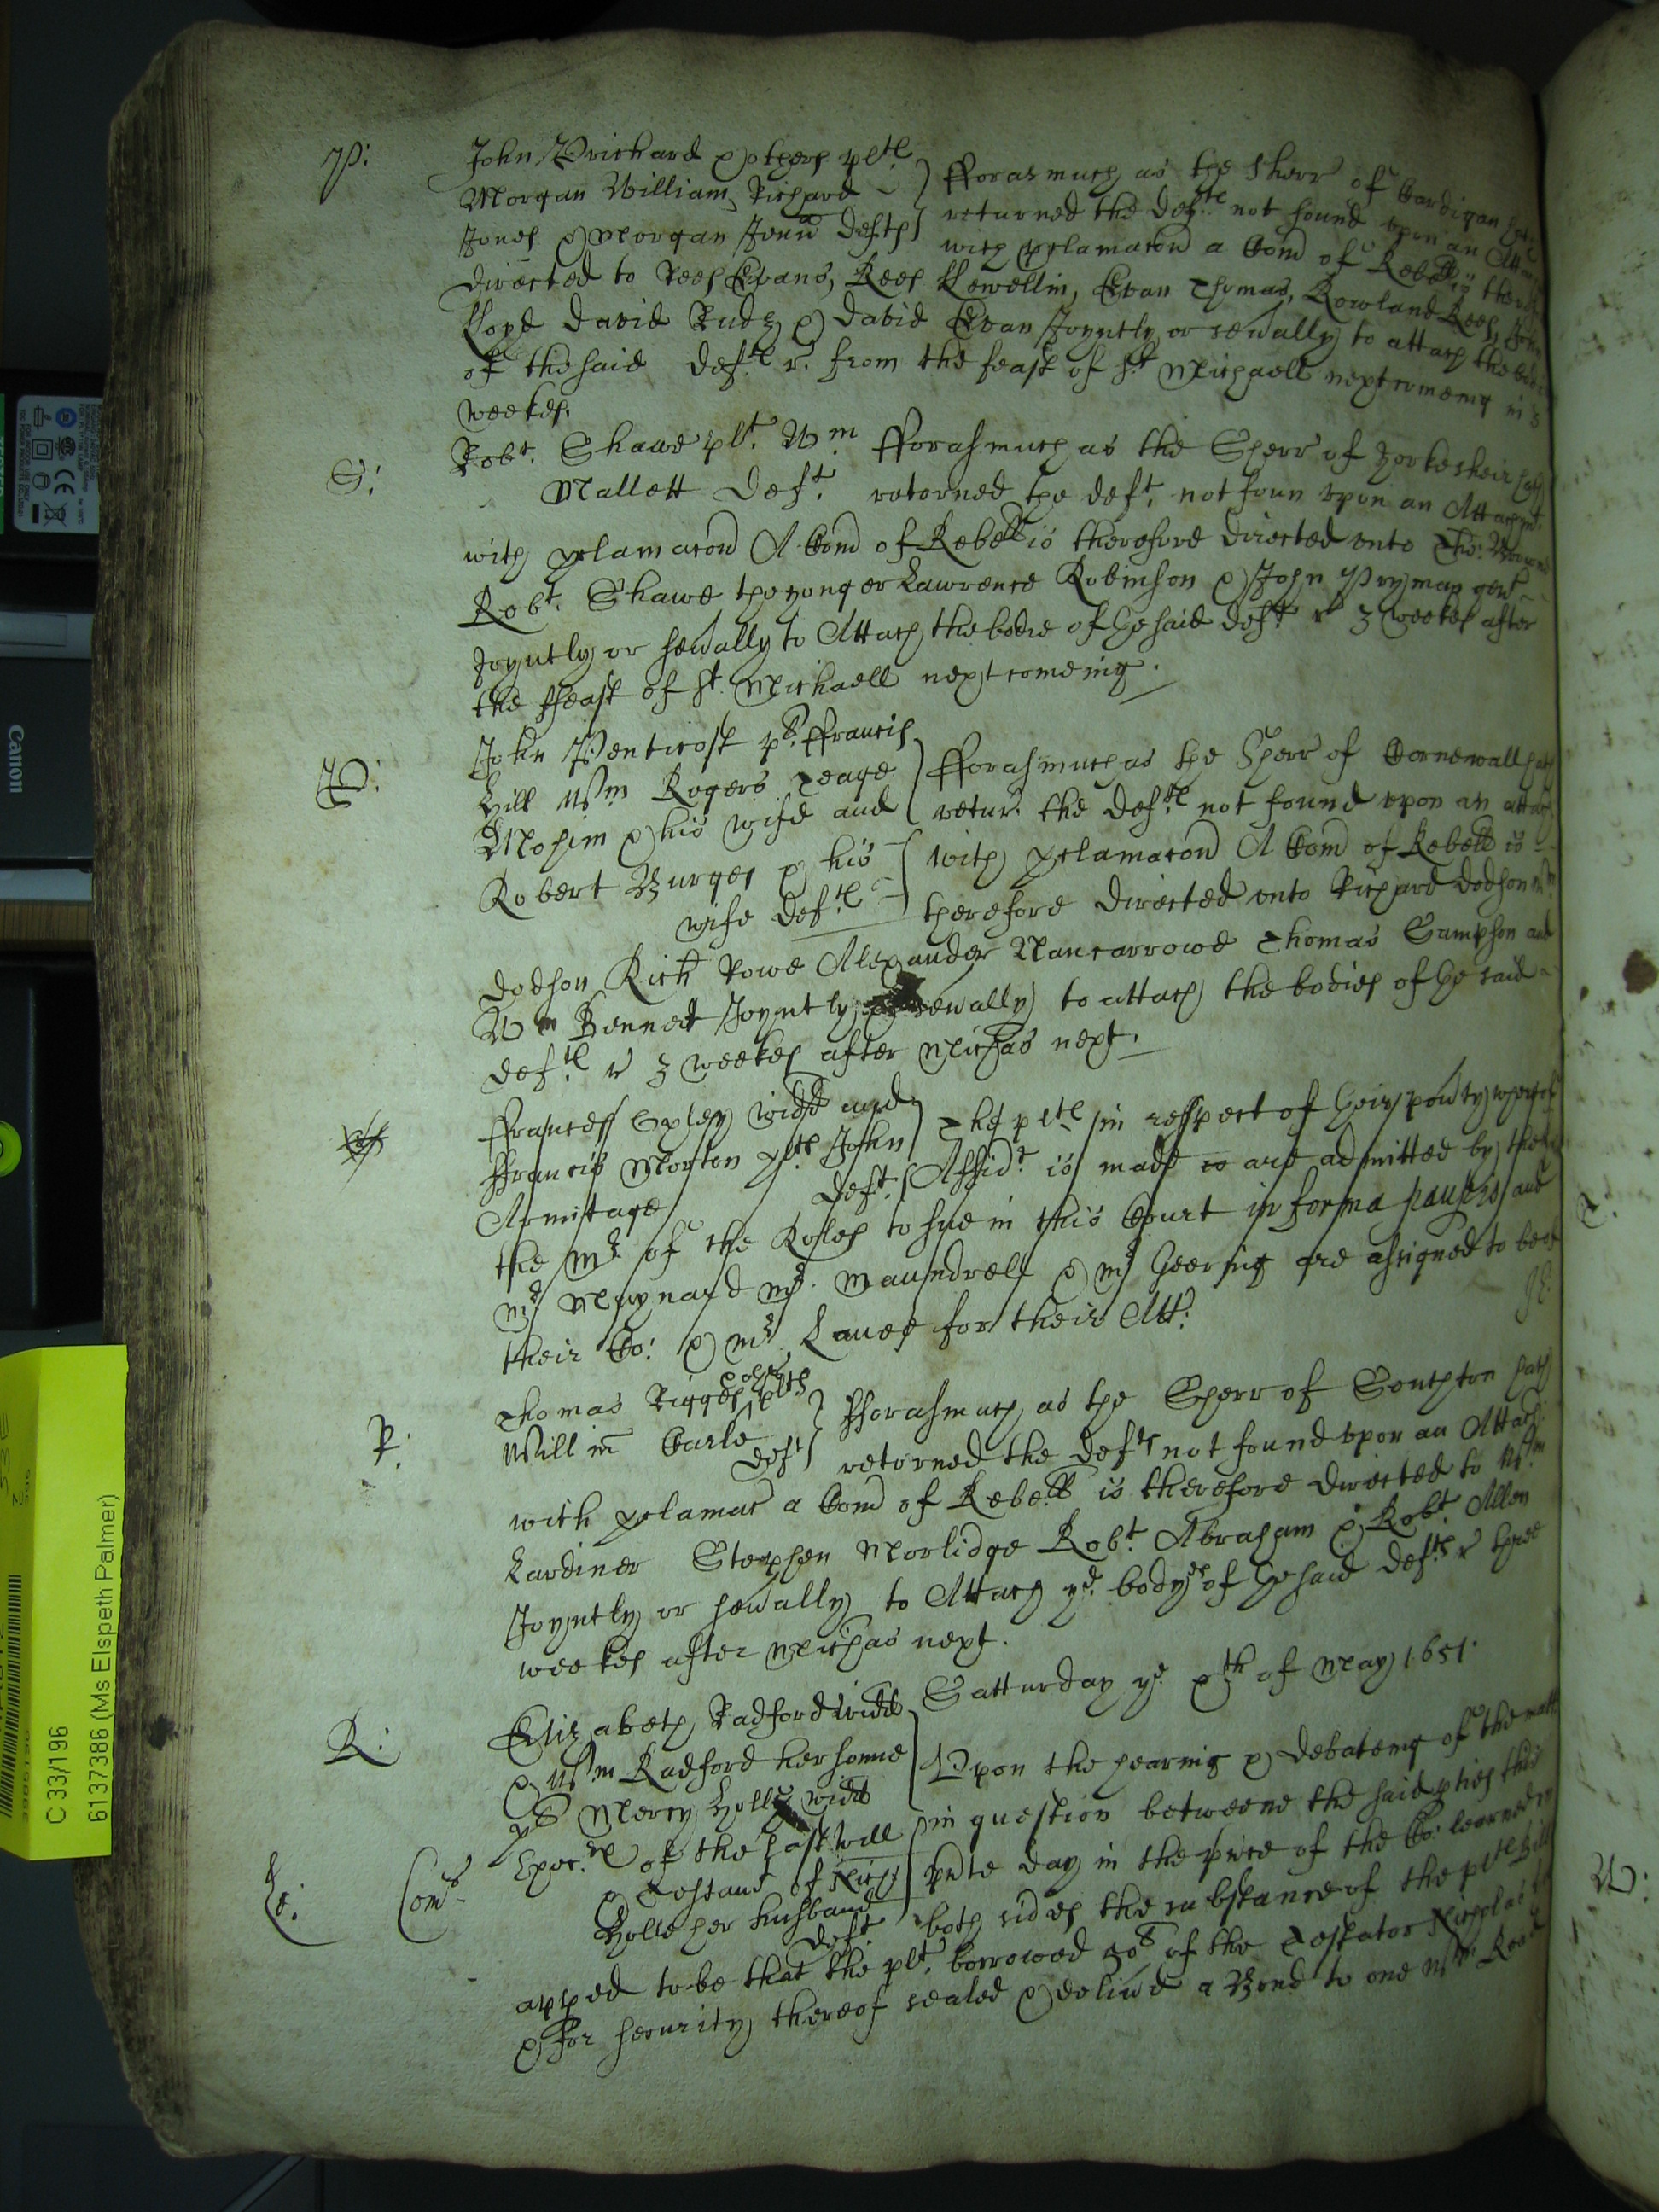 P:
John Prichard & others plts
Morgan William, Richard
Jones & Morgan Jeun defts
fforasmuch as the Sherr of Cardigan hath
returned the defts not found upon an Attach
with proclamacon a Com of Rebell is therefore
directed to Rees Evans, Rees Llewellin, Evan Thomas, Rowland Rees, John
Lloyd David Rudz & David Evan Joyntly or sevally to attach the bodies
of the said defts r. from the feast of St Michaell next comeing in 3
weekes.
S:
Robt. Shawe plt. Wm
Mallett Deft.
fforasmuch as the Sherr of Yorkesheir hath
retorned the deft. not foun upon an Attachmt.
with proclamacon A Com of Rebell is therefore directed unto Tho:
Robt. Shawe the yonger Lawrence Robinson & John Pryman gent
Joyntly or sevally to Attach the bodie of the said deft r 3 weekes after
the ffeast of St. Michaell next comeing.
P:
John Penticost pl. ffrancis
Hill Wm Rogers Teage
Mohim & his wife and
Robert Burges & his
wife defts
fforasmuch as the Sherr of Cornewall hath
retur. the defts not found upon an attach
with proclamacon A Com of Rebell is
therefore directed unto Richard Dodson Wm
Dodson Rich Rowe Alexander Nancarrowe Thomas Sampson and
Wm Bennett Joyntly or sevally to attach the bodies of the said
defts r 3 weekes after Michas next.
ffrances Exley widd and
ffrancis Morton plts John
Armitage deft.
The plts in respect of their povty whereof
Affidt. is made are admitted by the
the Mr of the Rolles to sue in this Court in forma paupis and
Mr Maynard Mr. Maundrell & Mr Geering are assigned to bee
their Co: & Mr Lane for their Att:
R:
Thomas Rigges & others plts
Willm Carle deft
fforasmuch as the Sherr of Southton hath
retorned the defts not found upon an Attach
with proclamac a Com of Rebell is therefore directed to Wm
Lardiner Stephen Morlidge Robt. Abraham & Robt. Allen
Joyntly or sevally to Attach ye. bodyes of the said defts r three
weekes after Michas next.
Satturday ye. xth of May 1651.
R:
Elizabeth Radford widd
& Wm Radford her sonne
pl Mercy Holle widd
Exec. of the last Will
& Testamt of Nichs
Holle her husband
deft.
Com
Upon the hearing & debateing of the matt
in question betweene the said pties this
pnte day in the pnce of the Co: learned on
both sides the substance of the plts Bill
apped to be that the plt. borrowed 50l of the Testator Nicholas
& for security thereof sealed & delivd a Bond to one Wm Read
W:
C 33/196
6137386 (Ms Elspeth Palmer)
Canon